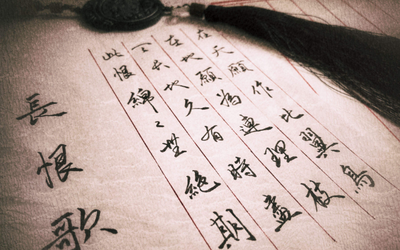 在天願作比翼鳥
在地願為連理枝
天长地久有時盡
此恨綿〻無絕期
長恨歌